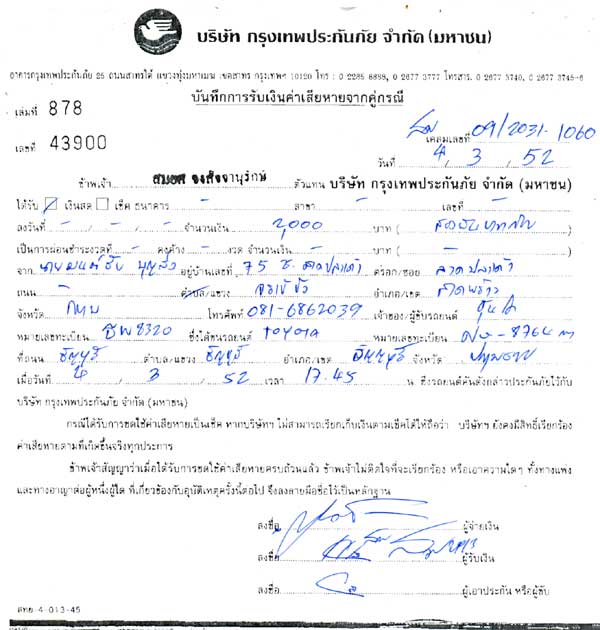 บริษัท กรุงเทพประกันภัย จำกัด (มหาชน)
อาคารกรุงเทพประกันภัย 25 ถนนสาทรใต้ แขวงทุ่งมหาเมฆ เขตสาทร กรุงเทพฯ 10120 โทร : 0 2285 8888, 0 2677 3777 โทรสาร. 0 2677 3740, 0 2677 3745-6
บันทึกการรับเงินค่าเสียหายจากคู่กรณี
เล่มที่ 878
เคลมเลขที่ 09/2031-1060
เลขที่ 43900
วันที่ 4, 3, 52
ข้าพเจ้า สมยศ จงสัจจานุรักษ์ ตัวแทน บริษัท กรุงเทพประกันภัย จำกัด (มหาชน)
ได้รับ เงินสด เช็ค ธนาคาร - สาขา - เลขที่ -
ลงวันที่ - / - / - จำนวนเงิน 2,000 บาท ( สองพันบาทถ้วน
เป็นการผ่อนชำระงวดที่ - คงค้าง - งวด จำนวนเงิน - บาท ( -
จาก บุญส่ง อยู่บ้านเลขที่ 75 ซ. ลาดปลาเค้า ตรอก/ซอย ลาดปลาเค้า
ถนน - ตำบล/แขวง จรเข้บัว อำเภอ/เขต ลาดพร้าว
จังหวัด กทม โทรศัพท์ 081-6862039 เจ้าของ/ผู้ขับรถยนต์
หมายเลขทะเบียน ชพ8320 ซึ่งได้ชนรถยนต์ TOYOTA หมายเลขทะเบียน -8764
ที่ถนน ธัญบุรี ตำบล/แขวง ธัญบุรี อำเภอ/เขต ธัญบุรี จังหวัด ปทุมธานี
เมื่อวันที่ 4, 3, 52 เวลา 17.45 น. ซึ่งรถยนต์คันดังกล่าวประกันภัยไว้กับ
บริษัท กรุงเทพประกันภัย จำกัด (มหาชน)
กรณีได้รับการชดใช้ค่าเสียหายเป็นเช็ค หากบริษัทฯ ไม่สามารถเรียกเก็บเงินตามเช็คได้ให้ถือว่า บริษัทฯ ยังคงมีสิทธิ์เรียกร้อง
ค่าเสียหายตามที่เกิดขึ้นจริงทุกประการ
ข้าพเจ้าสัญญาว่าเมื่อได้รับการชดใช้ค่าเสียหายครบถ้วนแล้ว ข้าพเจ้าไม่ติดใจที่จะเรียกร้อง หรือเอาความใดๆ ทั้งทางแพ่ง
และทางอาญาต่อผู้หนึ่งผู้ใด ที่เกี่ยวข้องกับอุบัติเหตุครั้งนี้ต่อไป จึงลงลายมือชื่อไว้เป็นหลักฐาน
ลงชื่อ ผู้จ่ายเงิน
ลงชื่อ ผู้รับเงิน
ลงชื่อ ผู้เอาประกัน หรือผู้ขับ
สทย 4-013-45